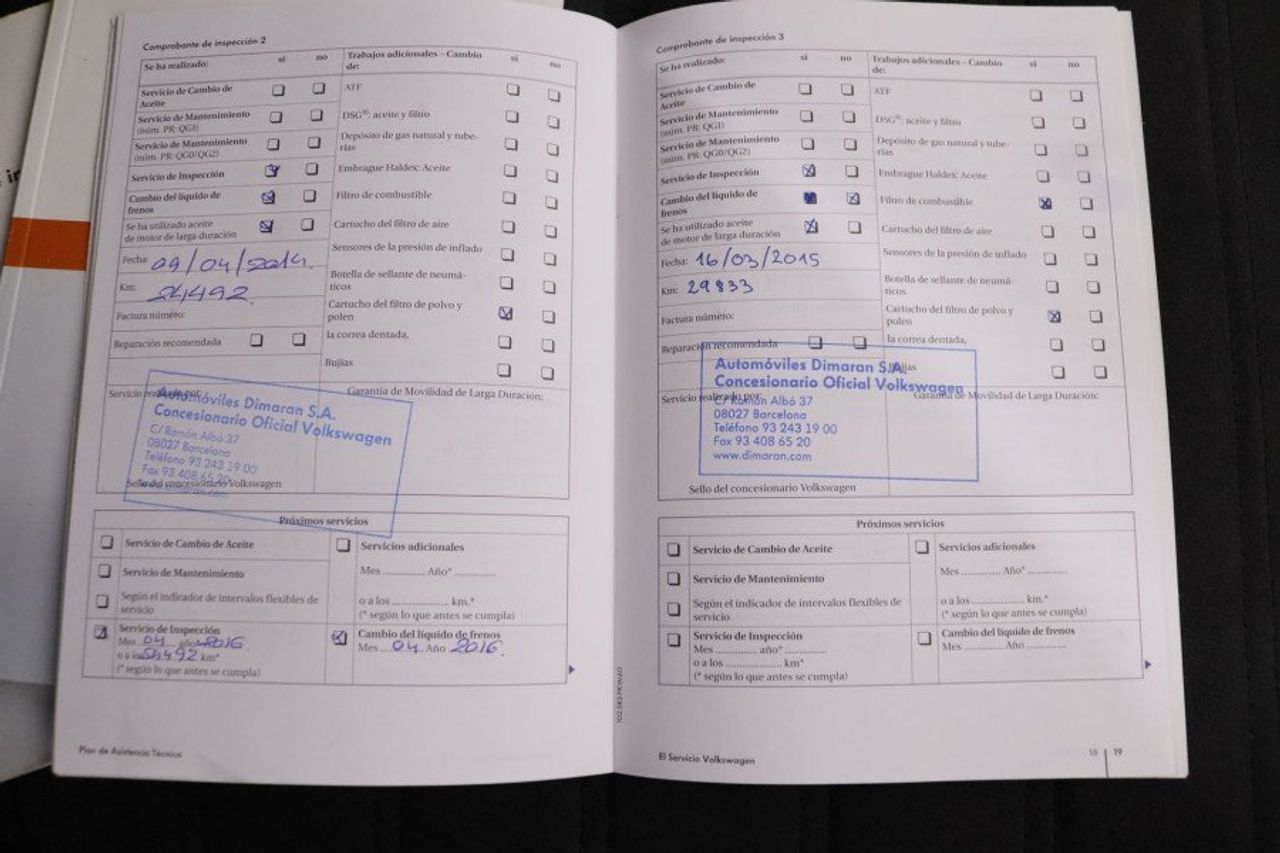 Comprobante de inspección 2
Se ha realizado:
sí
no
Servicio de Cambio de
Aceite
Servicio de Mantenimiento
(núm. PR: QG1)
Servicio de Mantenimiento
(núm. PR: QG0/QG2)
Servicio de Inspección
Cambio del líquido de
frenos
Se ha utilizado aceite
de motor de larga duración
Fecha: 09/04/2014.
Km:
Factura número:
Reparación recomendada
Trabajos adicionales - Cambio
de:
sí
no
ATF
DSG®: aceite y filtro
Depósito de gas natural y tube-
rías
Embrague Haldex: Aceite
Filtro de combustible
Cartucho del filtro de aire
Sensores de la presión de inflado
Botella de sellante de neumá-
ticos
Cartucho del filtro de polvo y
polen
la correa dentada,
Bujías
Servicio realizado por:
Garantía de Movilidad de Larga Duración:
Automóviles Dimaran S.A.
Concesionario Oficial Volkswagen
C/ Ramón Albó 37
08027 Barcelona
Teléfono 93 243 19 00
Fax 93 408 65 20
Sello del concesionario Volkswagen
Próximos servicios
Servicio de Cambio de Aceite
Servicio de Mantenimiento
Según el indicador de intervalos flexibles de
servicio
Servicio de Inspección
Mes 04 año* 2016.
o a los km*
(* según lo que antes se cumpla)
Servicios adicionales
Mes .............. Año* ..............
o a los .................... km.*
(* según lo que antes se cumpla)
Cambio del líquido de frenos
Mes 04 Año 2016.
Plan de Asistencia Técnica
Comprobante de inspección 3
Se ha realizado:
sí
no
Servicio de Cambio de
Aceite
Servicio de Mantenimiento
(núm. PR: QG1)
Servicio de Mantenimiento
(núm. PR: QG0/QG2)
Servicio de Inspección
Cambio del líquido de
frenos
Se ha utilizado aceite
de motor de larga duración
Fecha: 16/03/2015
Km: 29833
Factura número:
Reparación recomendada
Trabajos adicionales - Cambio
de:
sí
no
ATF
DSG®: aceite y filtro
Depósito de gas natural y tube-
rías
Embrague Haldex: Aceite
Filtro de combustible
Cartucho del filtro de aire
Sensores de la presión de inflado
Botella de sellante de neumá-
ticos
Cartucho del filtro de polvo y
polen
la correa dentada,
Bujías
Servicio realizado por:
Garantía de Movilidad de Larga Duración:
Automóviles Dimaran S.A.
Concesionario Oficial Volkswagen
C/ Ramón Albó 37
08027 Barcelona
Teléfono 93 243 19 00
Fax 93 408 65 20
www.dimaran.com
Sello del concesionario Volkswagen
Próximos servicios
Servicio de Cambio de Aceite
Servicio de Mantenimiento
Según el indicador de intervalos flexibles de
servicio
Servicio de Inspección
Mes .............. año* ..............
o a los .................... km*
(* según lo que antes se cumpla)
Servicios adicionales
Mes .............. Año* ..............
o a los .................... km.*
(* según lo que antes se cumpla)
Cambio del líquido de frenos
Mes .............. Año ..............
El Servicio Volkswagen
18 | 19